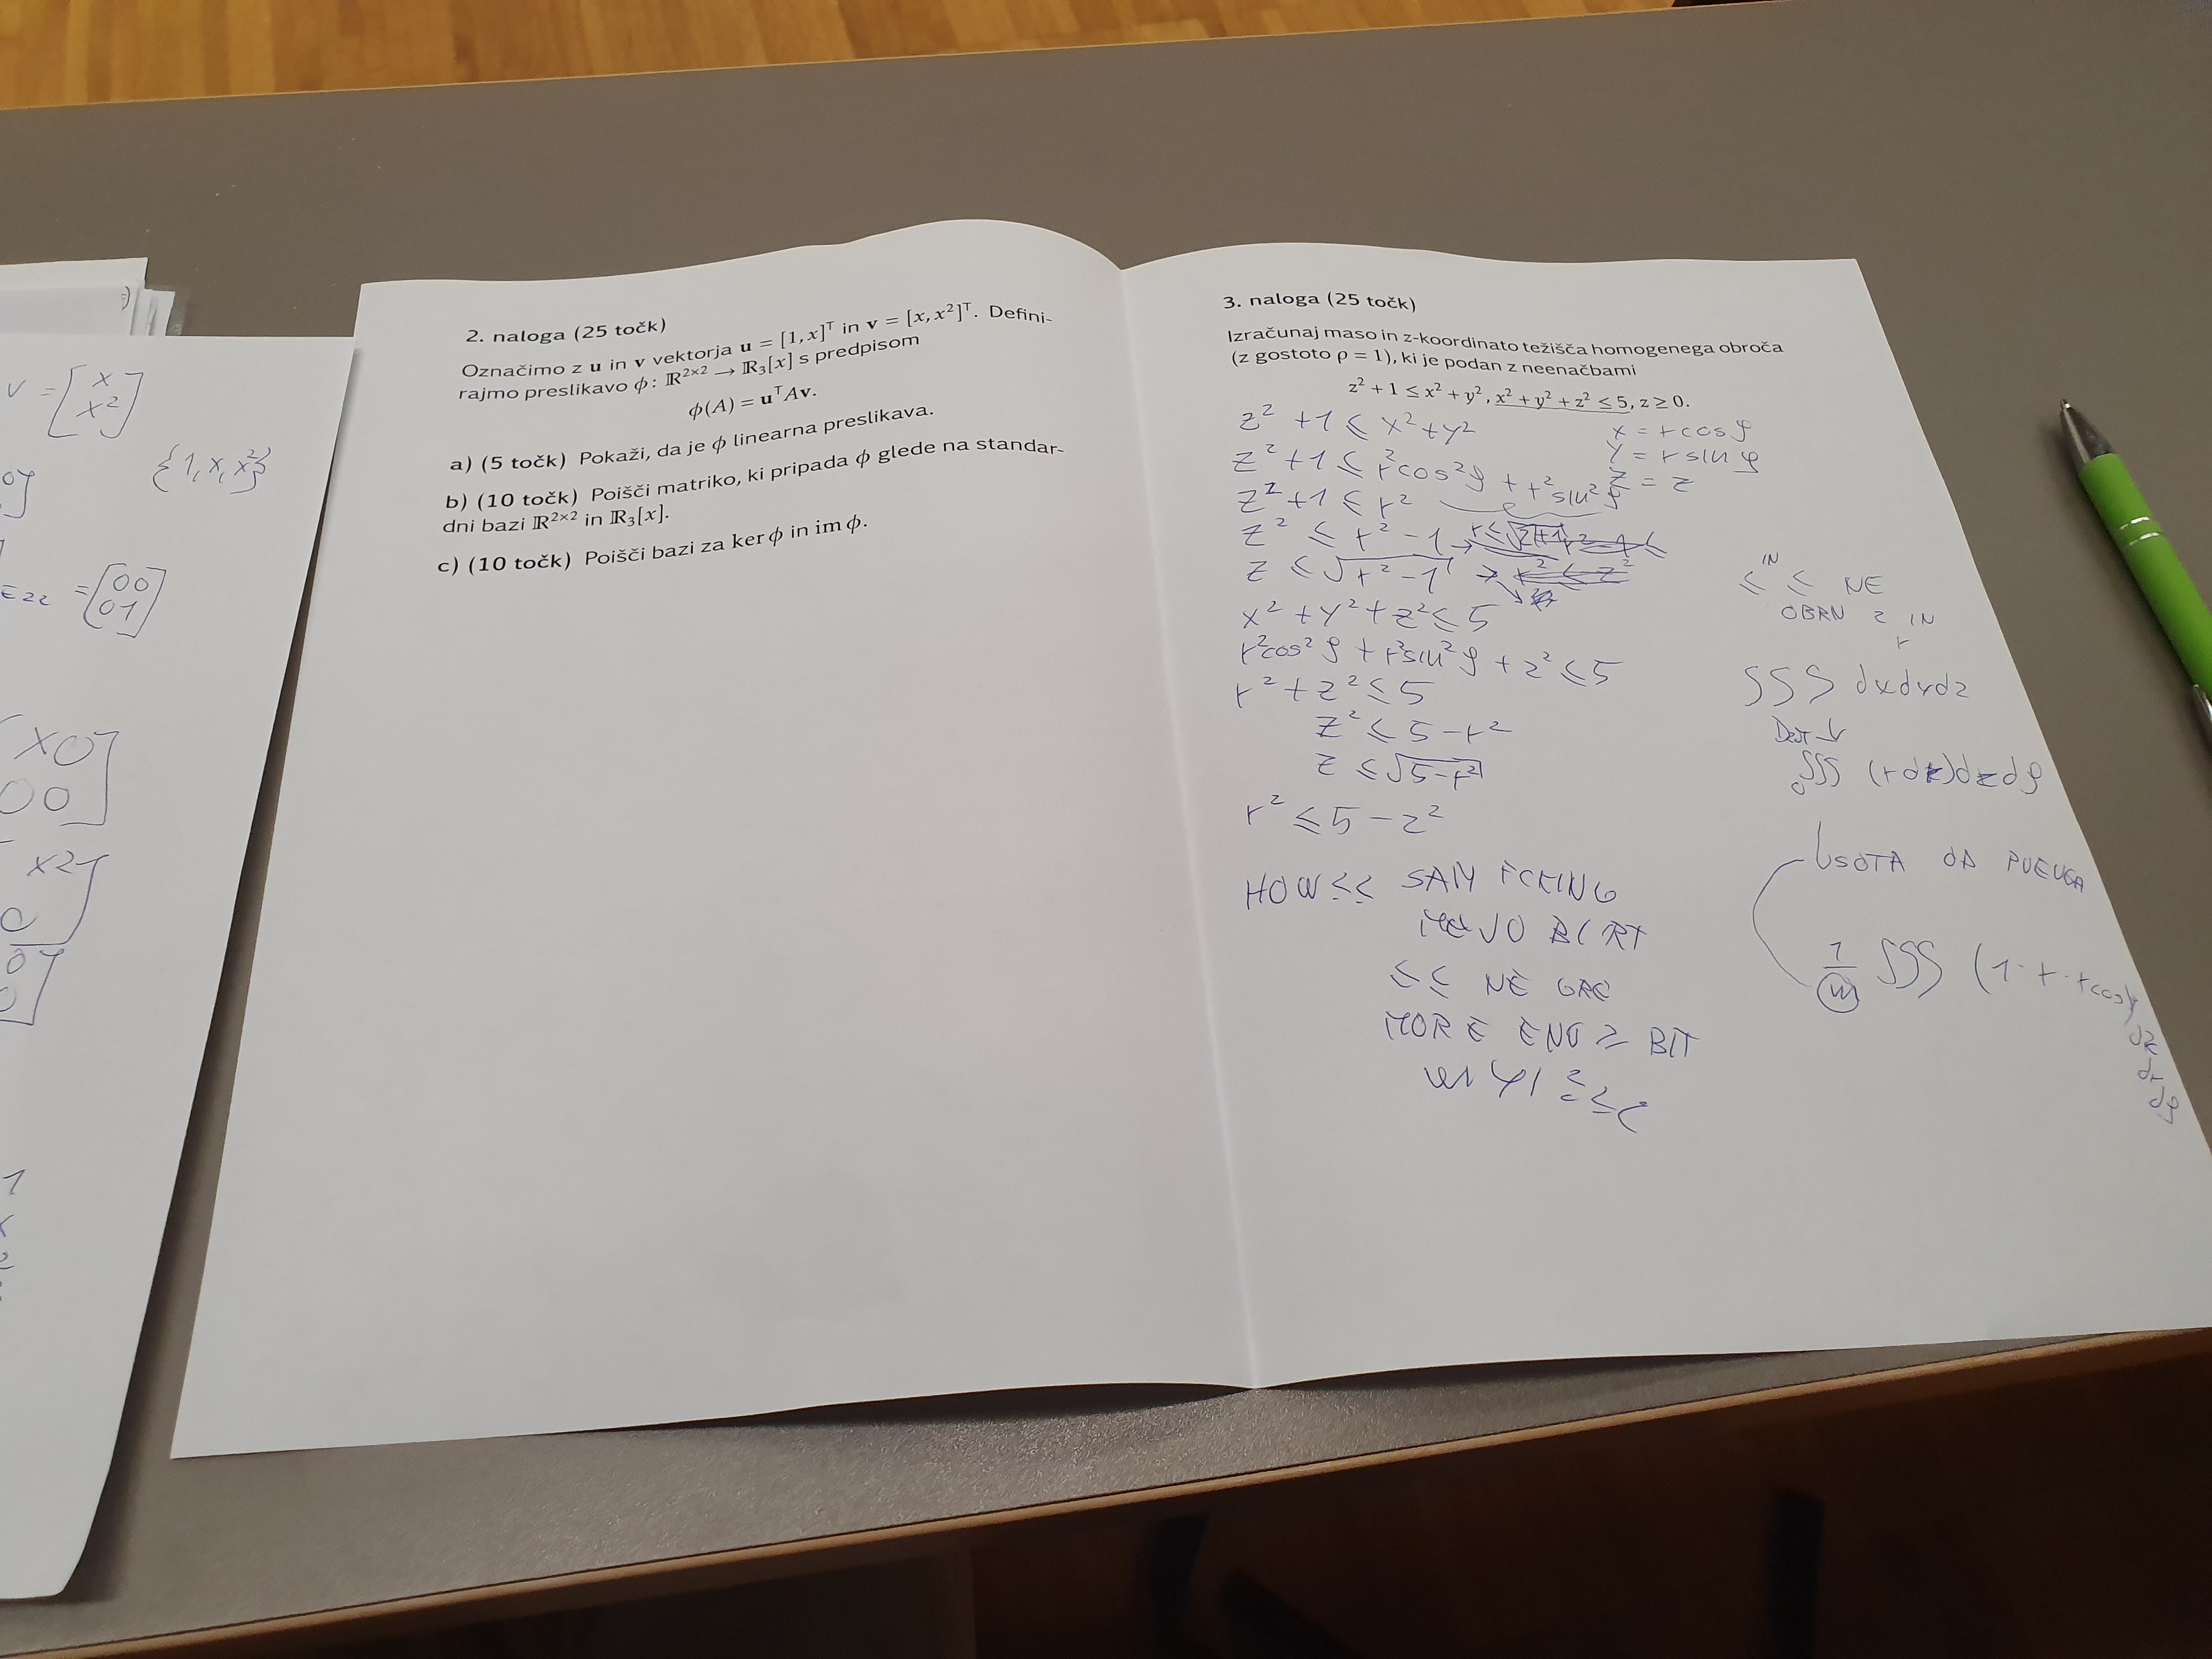 V = [x
x²]
{1, x, x²}
E22 = [00
01]
x0
00
x2
2. naloga (25 točk)
Označimo z u in v vektorja u = [1, x]ᵀ in v = [x, x²]ᵀ. Defini-
rajmo preslikavo ϕ: ℝ²ˣ² → ℝ₃[x] s predpisom
ϕ(A) = uᵀAv.
a) (5 točk) Pokaži, da je ϕ linearna preslikava.
b) (10 točk) Poišči matriko, ki pripada ϕ glede na standar-
dni bazi ℝ²ˣ² in ℝ₃[x].
c) (10 točk) Poišči bazi za ker ϕ in im ϕ.
3. naloga (25 točk)
Izračunaj maso in z-koordinato težišča homogenega obroča
(z gostoto ρ = 1), ki je podan z neenačbami
z² + 1 ≤ x² + y², x² + y² + z² ≤ 5, z ≥ 0.
z² + 1 ≤ x² + y²
z² + 1 ≤ r² cos² φ + r² sin² φ
z² + 1 ≤ r²
z² ≤ r² - 1
z ≤ √(r² - 1)
x² + y² + z² ≤ 5
r² cos² φ + r² sin² φ + z² ≤ 5
r² + z² ≤ 5
z² ≤ 5 - r²
z ≤ √(5 - r²)
r² ≤ 5 - z²
HOW ≤≤ SAM
≤≤ NE GRE
MORE ENO ≥ BIT
x = r cos φ
y = r sin φ
z = z
≤ IN ≤ NE
OBRN z IN
r
∫∫∫ dx dy dz
∫∫∫ (r dr) dz dφ
1/m ∫∫∫ (1 · r · r cos φ
dz
dr
dφ